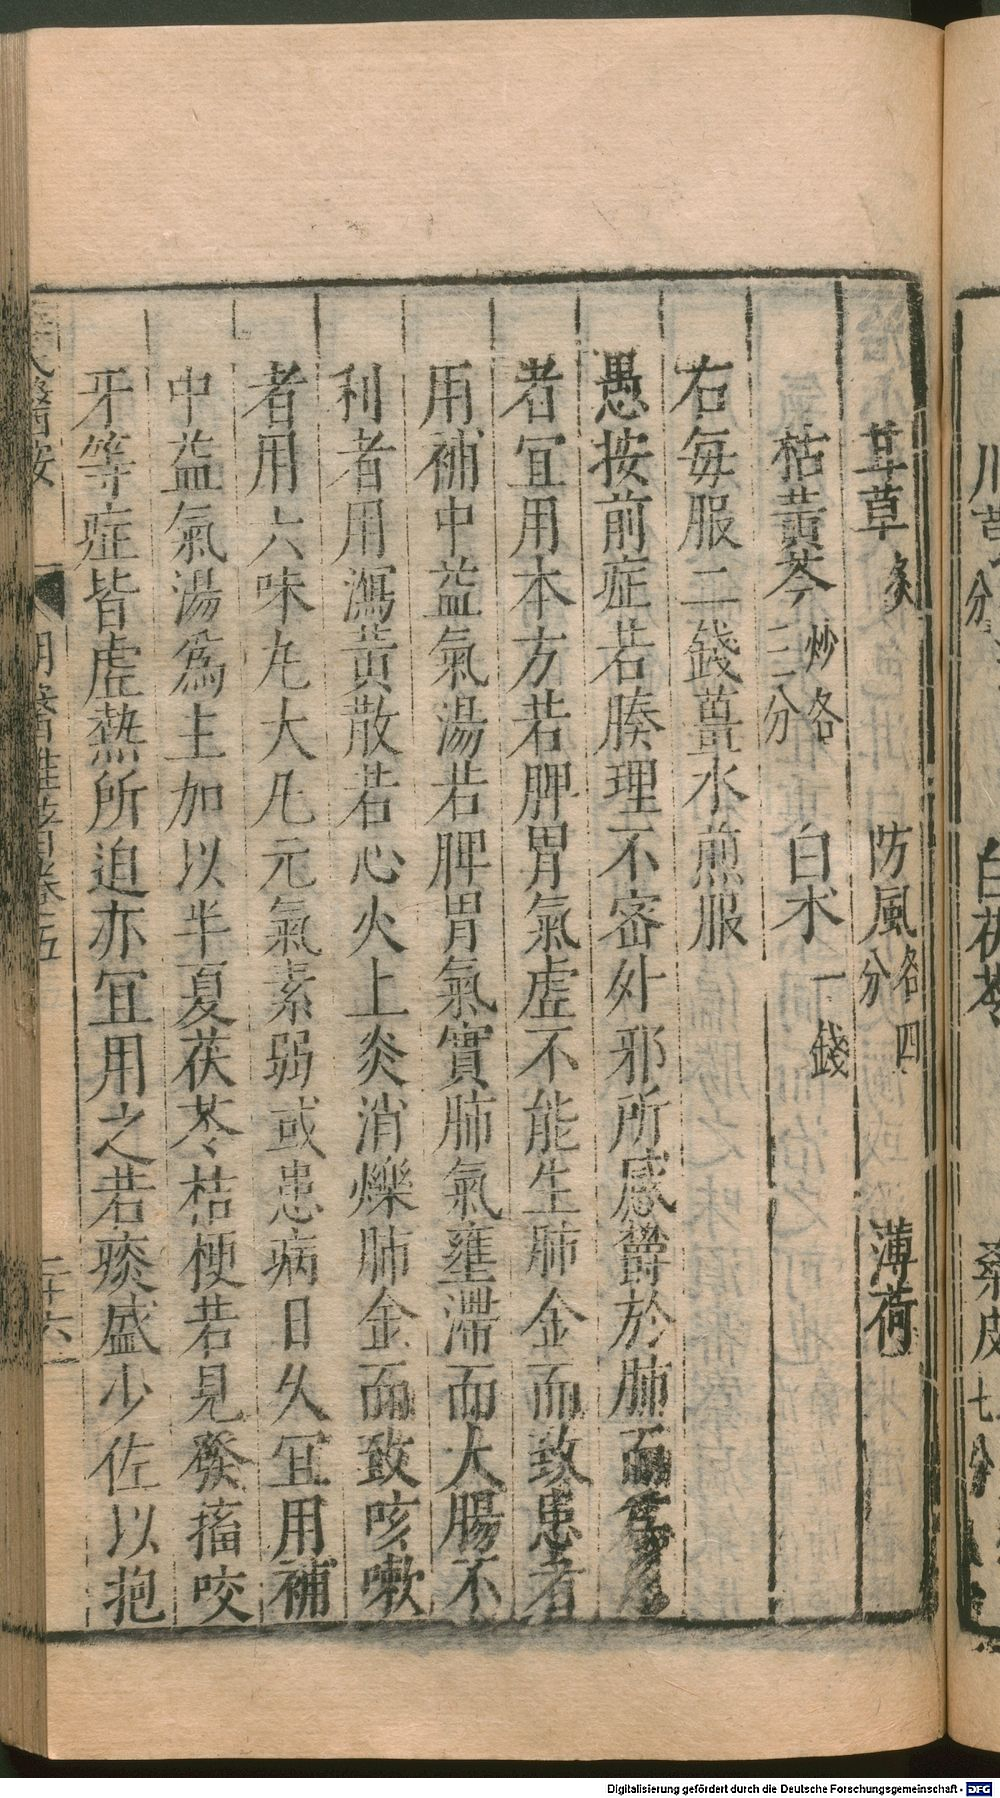 川芎
分
白茯苓
桑皮七分
甘草炙
防風各四分
薄荷
枯黃芩炒各三分
白朮一錢
右每服二錢薑水煎服
愚按前症若腠理不密外邪所感鬱於肺而
者宜用本方若脾胃氣虛不能生肺金而致患者
用補中益氣湯若脾胃氣實肺氣壅滯而大腸不
利者用瀉黃散若心火上炎消爍肺金而致咳嗽
者用六味尢大凡元氣素弱或患病日久宜用補
中益氣湯為主加以半夏茯苓桔梗若見發搐咬
牙等症皆虛熱所迫亦宜用之若痰盛少佐以抱
明醫雜著卷五
二十六
Digitalisierung gefördert durch die Deutsche Forschungsgemeinschaft - DFG